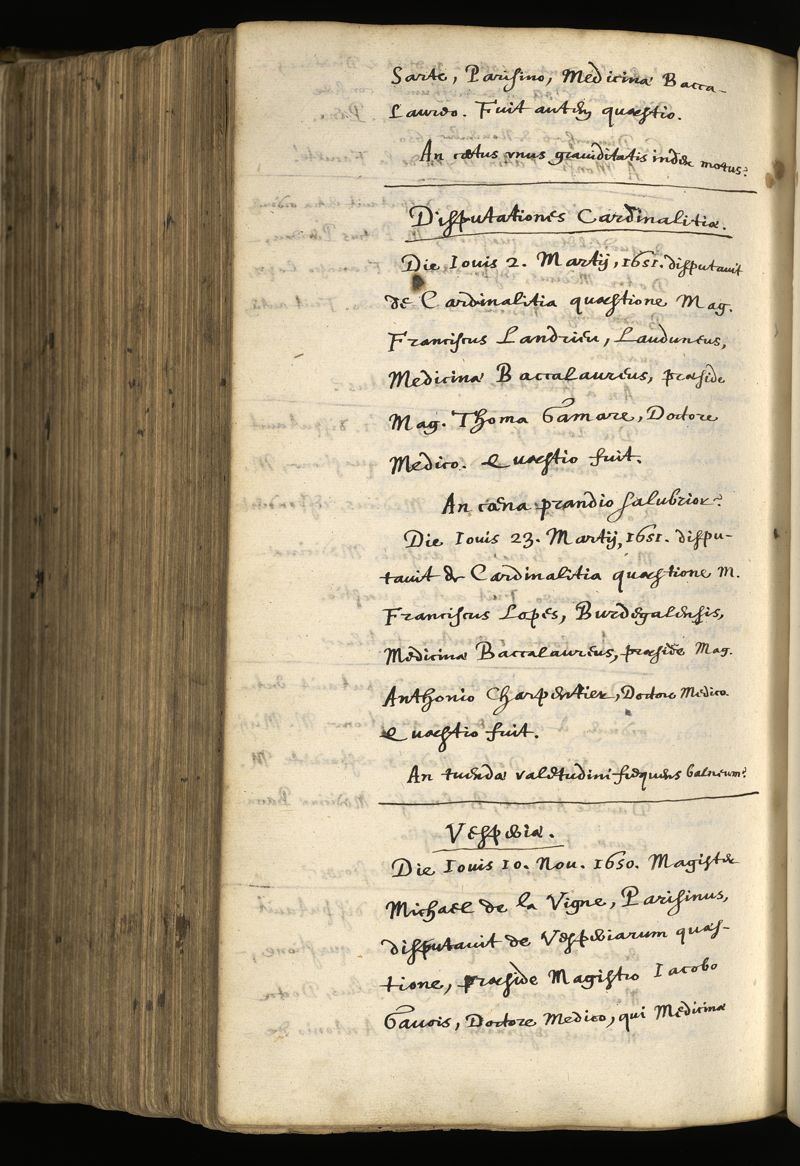 Sarte, Parisino, Medicinæ Bacca-
Laureo. Fuit autem quæstio.
An cœtus vnus grauiditatis index motus?
Disputationes Cardinalitiæ.
Die Iouis 2. Martij, 1651. disputauit
de Cardinalitia quæstione Mag.
Franciscus Landrieu, Lauduneus,
Medicinæ Baccalaureus, præside
Mag. Thoma Gamare, Doctore
Medico. Quæstio fuit.
An cœna prandio salubrior?
Die Iouis 23. Martij, 1651. dispu-
tauit de Cardinalitia quæstione M.
Franciscus Lopes, Burdegalensis,
Medicinæ Baccalaureus, præside Mag.
Anthonio Charpentier, Doctore Medico.
Quæstio fuit.
An tuendæ valetudini frequens balneum?
Vesperiæ.
Die Iouis 10. Nou. 1650. Magister
Michael de la Vigne, Parisinus,
disputauit de Vesperiarum quæs-
tione, præside Magistro Iacobo
Gauois, Doctore Medico, qui Medicinæ